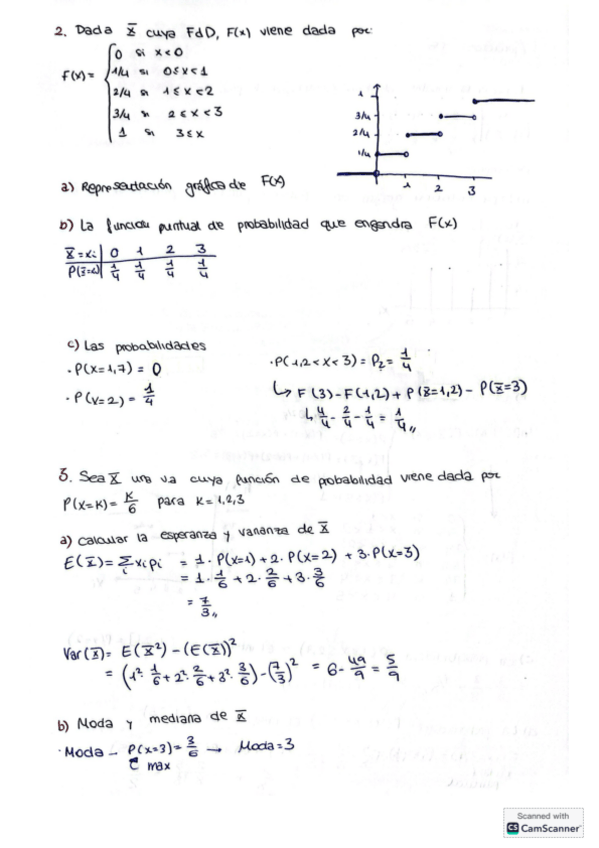 2. Dada X̄ cuya FdD, F(x) viene dada por:
F(x) = { 0 si x<0
1/4 si 0≤x<1
2/4 si 1≤x<2
3/4 si 2≤x<3
1 si 3≤x
1
3/4
2/4
1/4
1 2 3
a) Representación gráfica de F(x)
b) La función puntual de probabilidad que engendra F(x)
X̄=xi | 0 1 2 3
P(X̄=xi) | 1/4 1/4 1/4 1/4
c) Las probabilidades
· P(X=1,7) = 0
· P(X=2) = 1/4
· P(1,2<X<3) = P2 = 1/4
↳ F(3) - F(1,2) + P(X̄=1,2) - P(X̄=3)
↳ 4/4 - 2/4 - 1/4 = 1/4 ,,
3. Sea X̄ una va cuya función de probabilidad viene dada por
P(X=K) = K/6 para K=1,2,3
a) Calcular la esperanza y varianza de X̄
E(X̄) = Σi xi pi = 1·P(X=1) + 2·P(X=2) + 3·P(X=3)
= 1·1/6 + 2·2/6 + 3·3/6
= 7/3 ,,
Var(X̄) = E(X̄²) - (E(X̄))²
= (1²·1/6 + 2²·2/6 + 3²·3/6) - (7/3)² = 6 - 49/9 = 5/9
b) Moda y mediana de X̄
· Moda - P(X=3) = 3/6 → Moda = 3
max
Scanned with
CS CamScanner